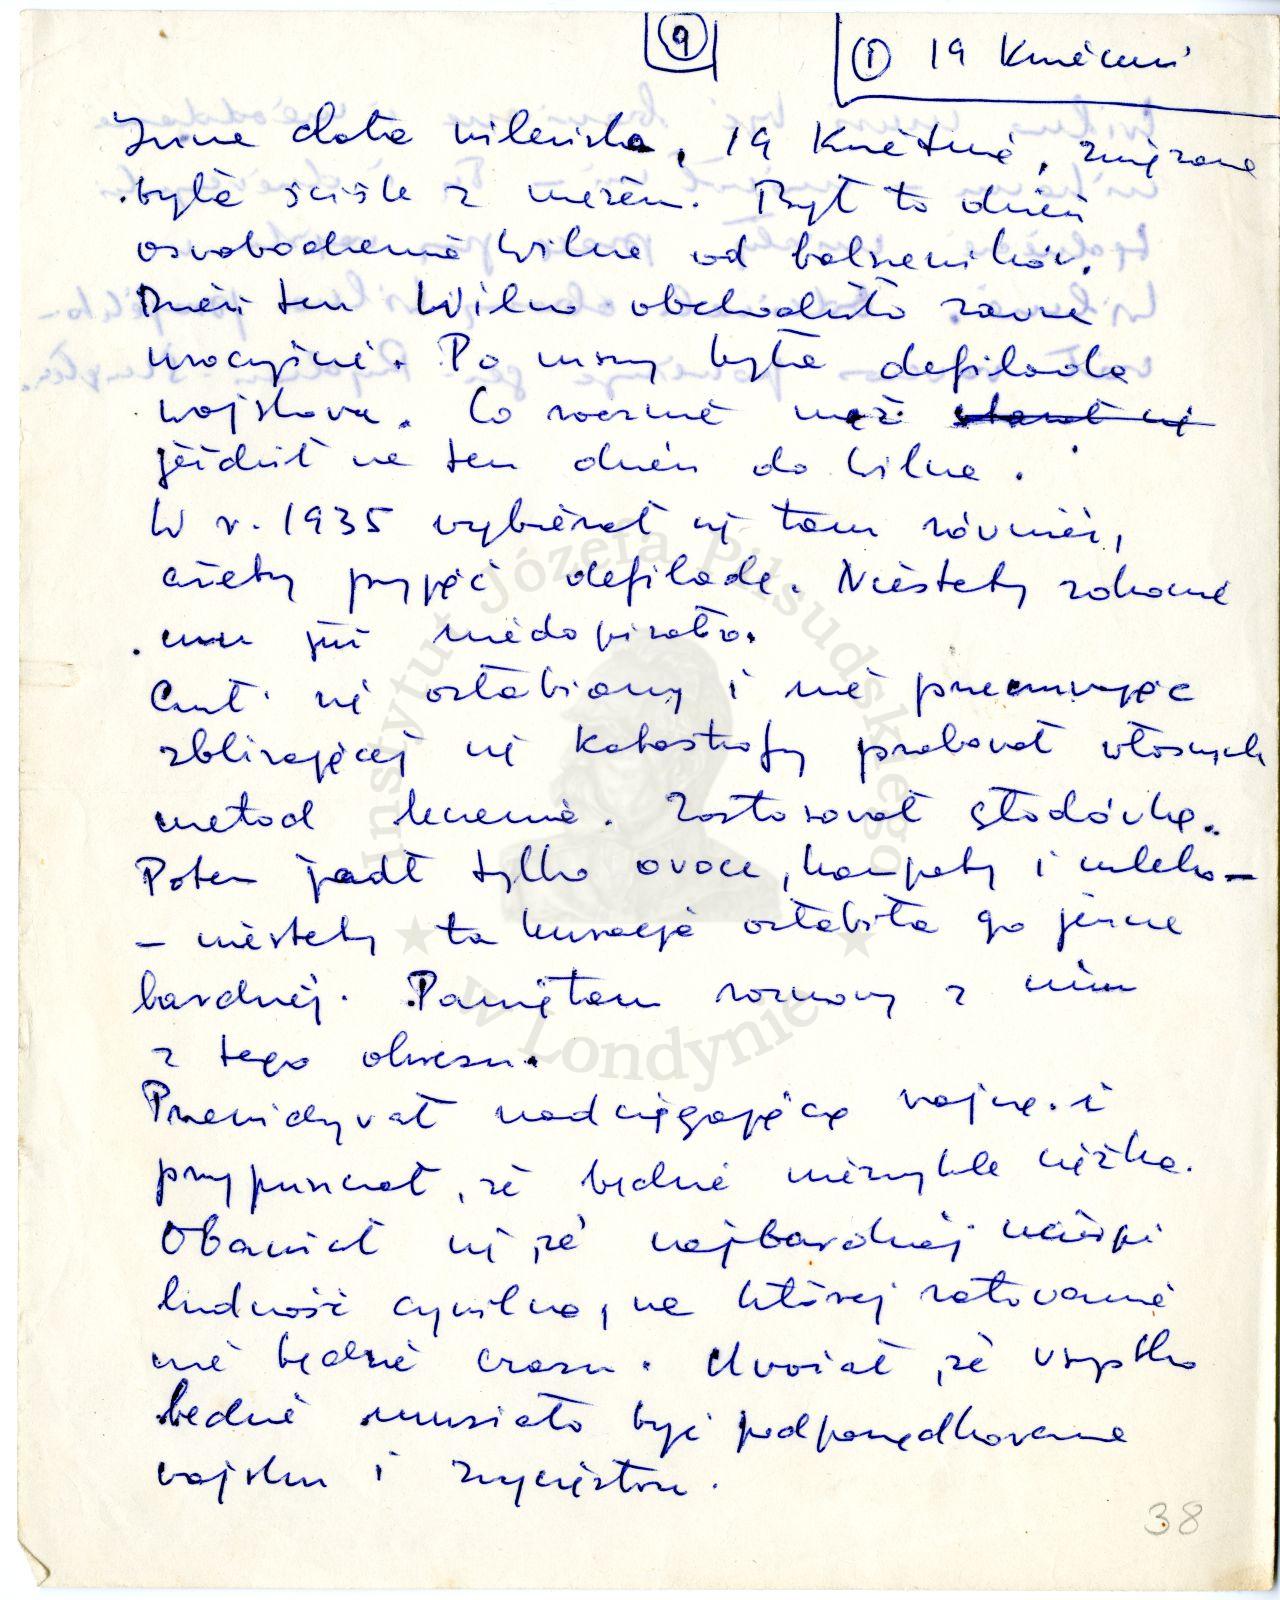 9
① 19 Kwiecień
Inna data wileńska, 19 Kwietnia, związana
była ściśle z mężem. Był to dzień
oswobodzenia Wilna od bolszewików.
Dzień ten Wilno obchodziło zawsze
uroczyście. Po mszy była defilada
wojskowa. Co rocznie mąż starał się
jeździł na ten dzień do Wilna.
W r. 1935 wybierał się tam również,
ażeby przyjąć defiladę. Niestety zdrowie
mu już niedopisało.
Czuł się osłabiony i nie przeczuwając
zbliżającej się Katastrofy probował własnych
metod leczenia. Zastosował głodówkę.
Potem jadł tylko owoce, kompoty i mleko –
– niestety ta kuracja osłabiła go jeszcze
bardziej. Pamiętam rozmowy z nim
z tego okresu.
Przewidywał nadciągającą wojnę i
przypuszczał, że będzie niezwykle ciężka.
Obawiał się, że najbardziej ucierpi
ludność cywilna, na której ratowanie
nie będzie czasu. Uważał, że wszystko
będzie musiało być podporządkowane
wojsku i zwycięstwu.
38
Instytut Józefa Piłsudskiego
w Londynie